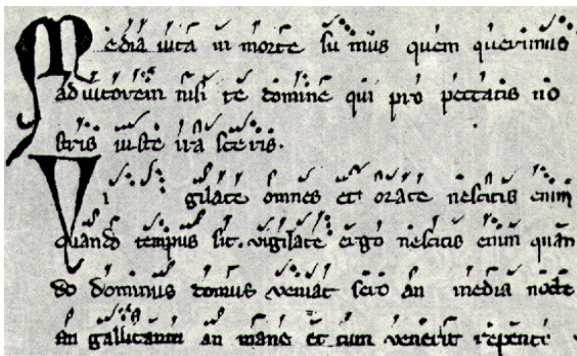 Media uita in morte sumus quem querimus
adiutorem nisi te domine qui pro peccatis no
stris iuste irasceris.
Vigilate omnes et orate nescitis enim
quando tempus sit. vigilate ergo nescitis enim quan
do dominus domus veniat sero an media nocte
an gallicantu an mane et cum venerit repente